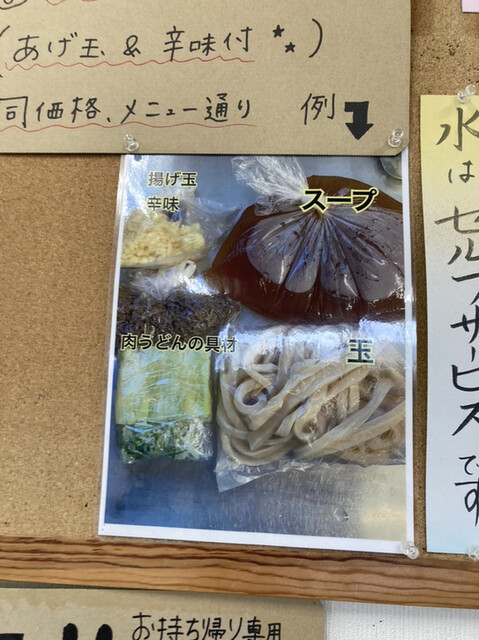 (あげ玉 & 辛味付 )
同価格、メニュー通り 例
揚げ玉
辛味
スープ
肉うどんの具材
玉
水はセルフサービスです
お持ち帰り専用